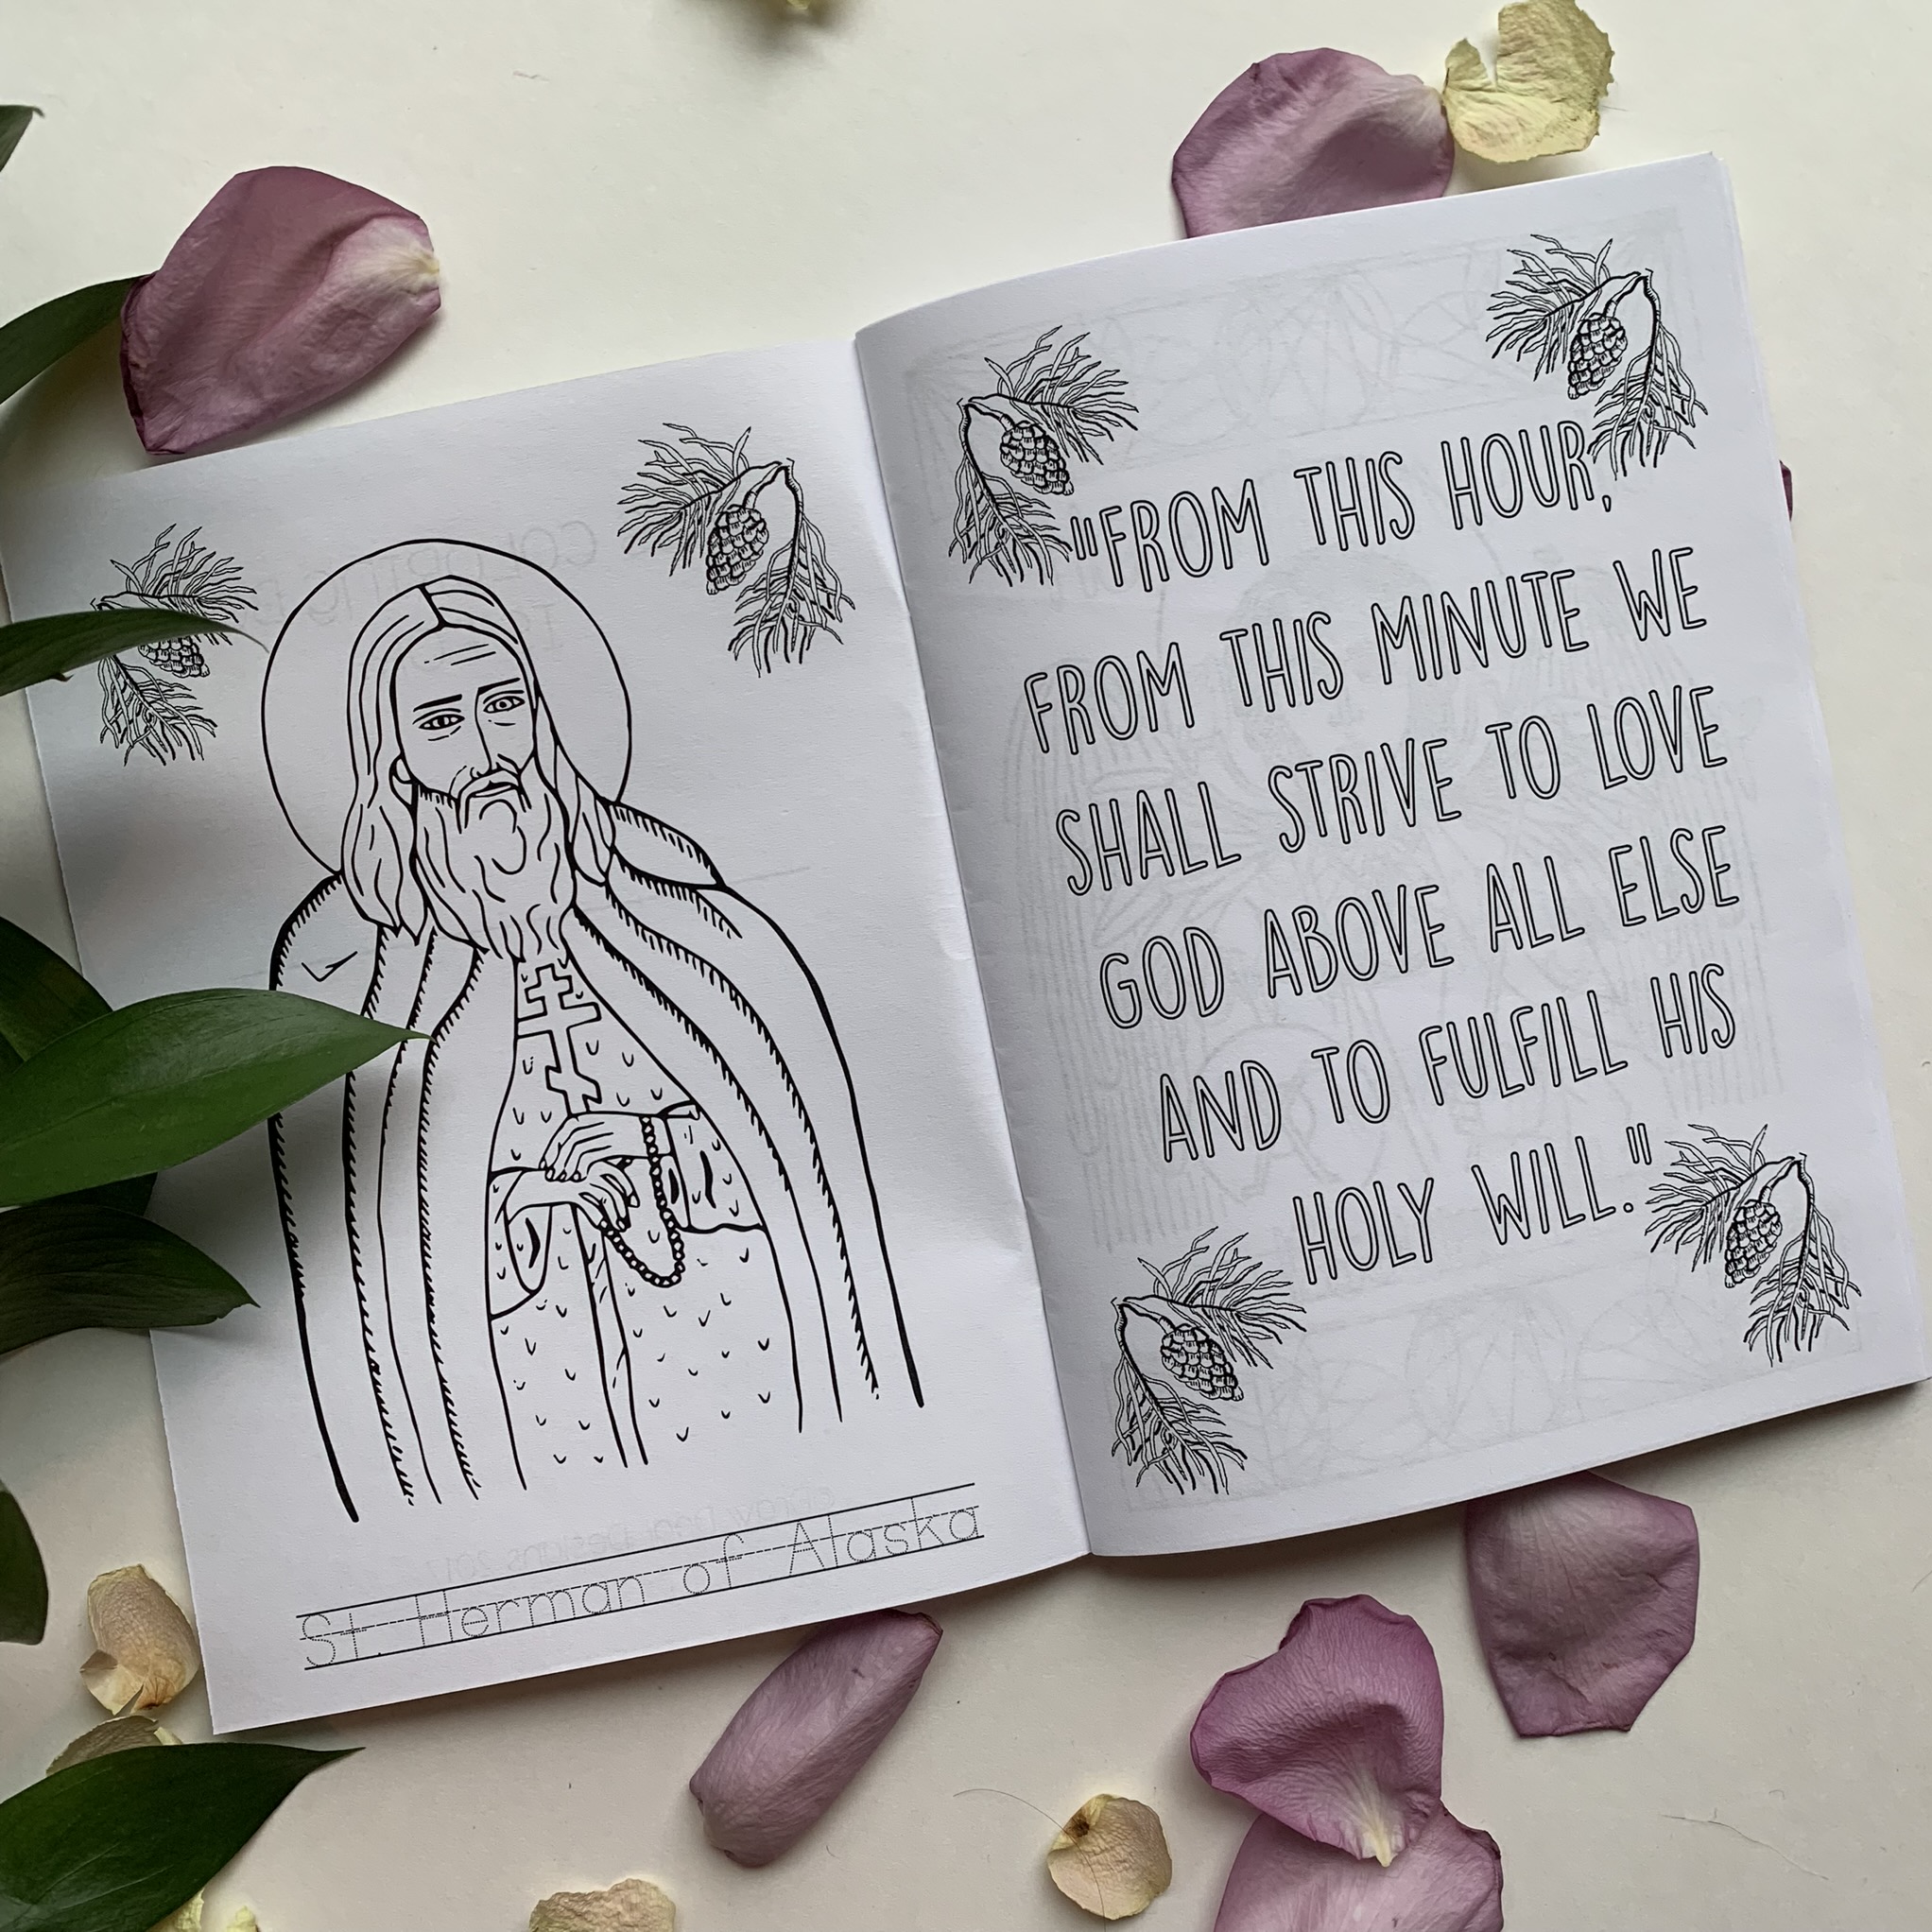 St. Herman of Alaska
"FROM THIS HOUR,
FROM THIS MINUTE WE
SHALL STRIVE TO LOVE
GOD ABOVE ALL ELSE
AND TO FULFILL HIS
HOLY WILL."